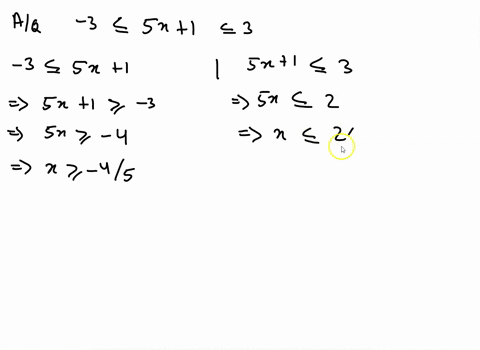 A/Q -3 ≤ 5x+1 ≤ 3
-3 ≤ 5x+1 | 5x+1 ≤ 3
=> 5x+1 ≥ -3 => 5x ≤ 2
=> 5x ≥ -4 => x ≤ 2/
=> x ≥ -4/5